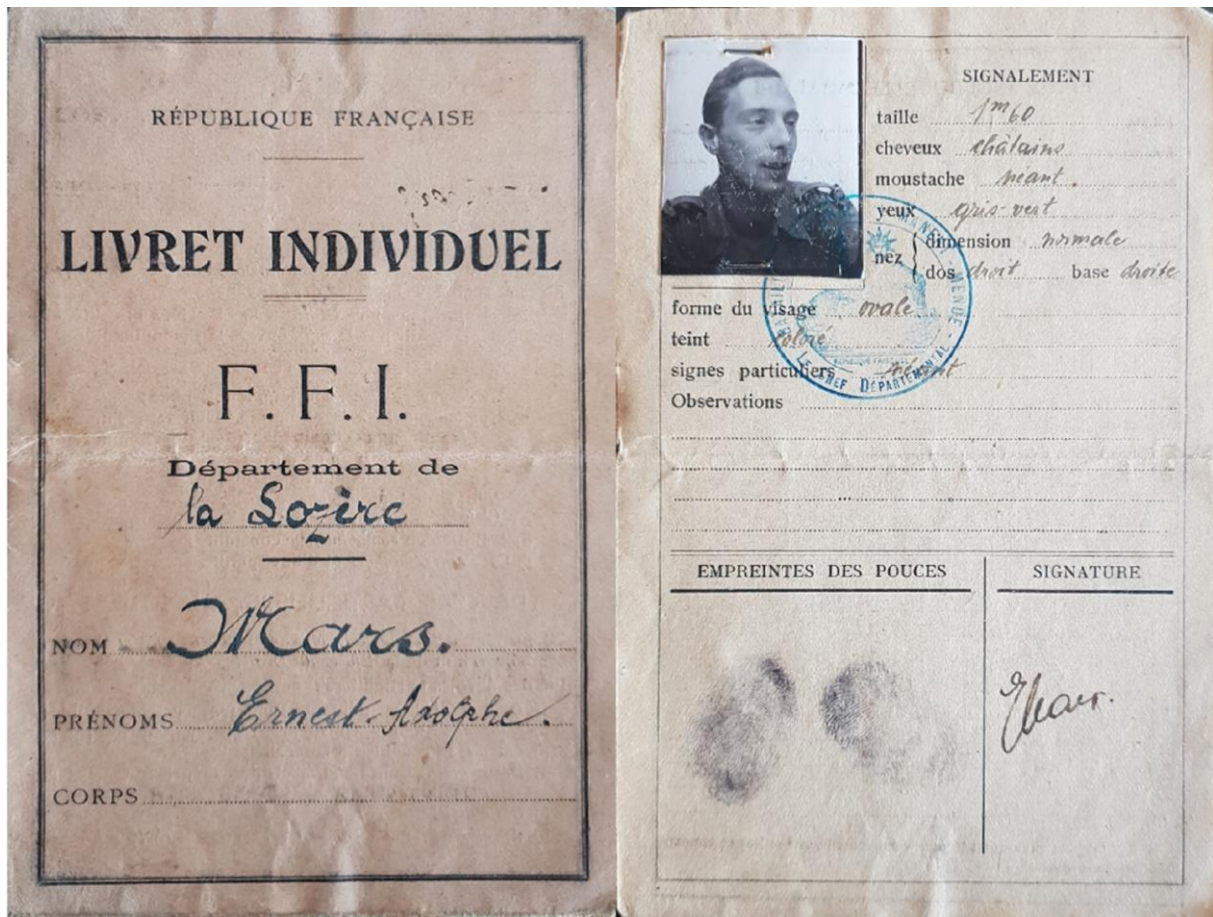 RÉPUBLIQUE FRANÇAISE
LIVRET INDIVIDUEL
F. F. I.
Département de
la Lozère
NOM Mars.
PRÉNOMS Ernest-Adolphe.
CORPS
SIGNALEMENT
taille 1m60
cheveux châtains
moustache néant.
yeux gris-vert
nez { dimension normale
dos droit base droite
forme du visage ovale
teint coloré
signes particuliers néant
Observations
LE CHEF DÉPARTEMENTAL - MENDE
EMPREINTES DES POUCES
SIGNATURE